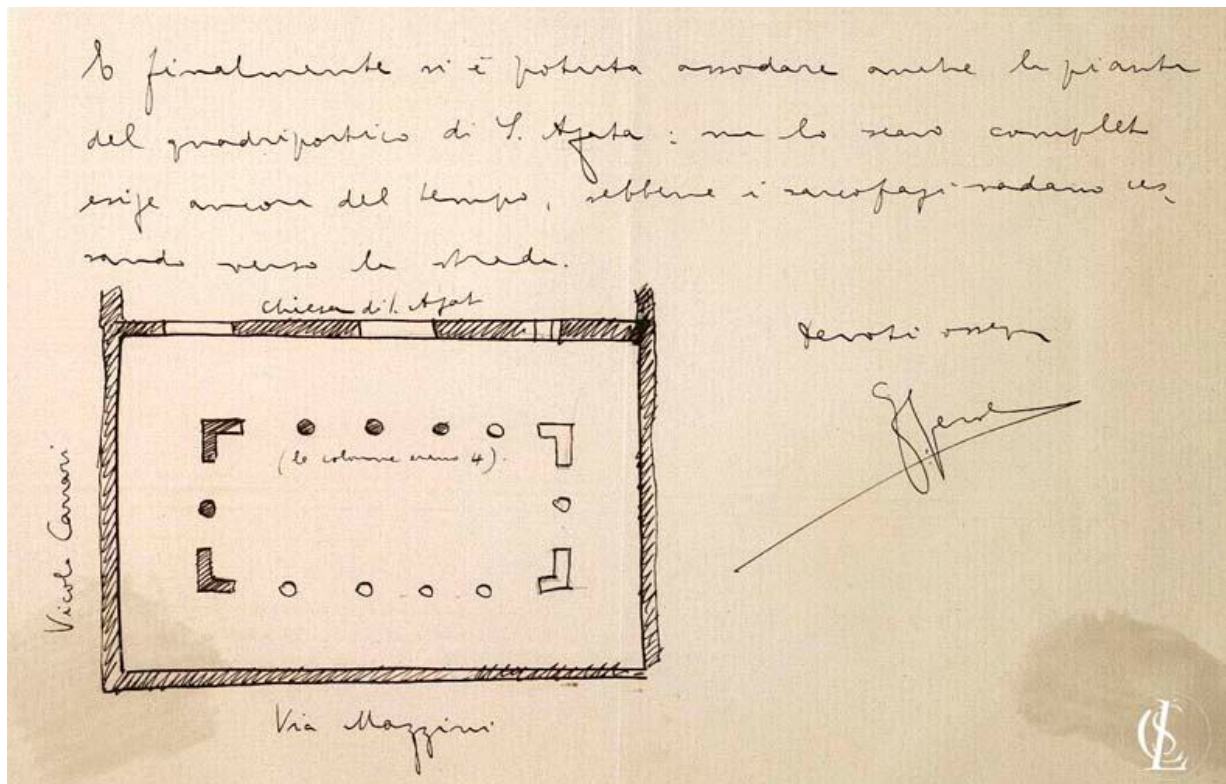 E finalmente si è potuta assodare anche la pianta
del quadriportico di S. Agata: ma lo scavo complet
esige ancora del tempo, sebbene i sarcofagi vadano ces,
sando verso la strada.
Chiesa di S. Agat
devoti osseq
(le colonne erano 4).
Vicolo Carrari
Via Mazzini